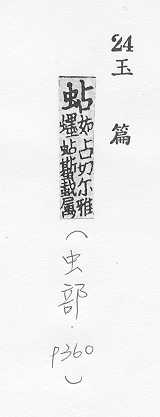 24
玉篇
蛅
如占切尔雅
蟔蛅蟴載属
(虫部.
p360)